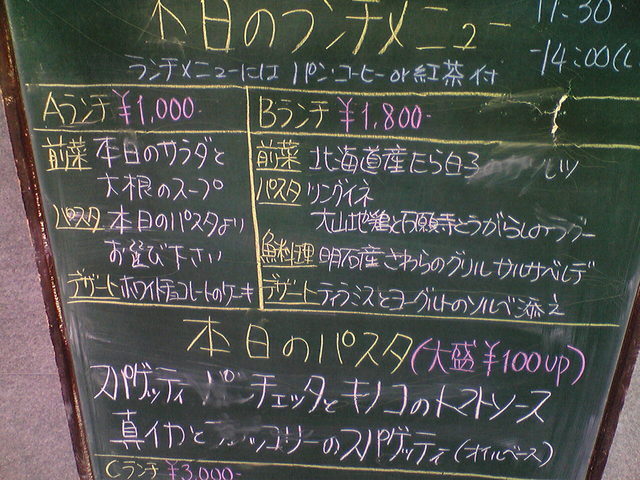 本日のランチメニュー
11:30
-14:00(L
ランチメニューには パン・コーヒー or 紅茶付
Aランチ ¥1,000-
前菜 本日のサラダと
大根のスープ
パスタ 本日のパスタより
お選び下さい
デザート ホワイトチョコレートのケーキ
Bランチ ¥1,800-
前菜 北海道産たら白子の
パスタ リングイネ
大山地鶏と石願寺とうがらしのラグー
魚料理 明石産さわらのグリル サルサベルデ
デザート ティラミスとヨーグルトのソルベ添え
本日のパスタ(大盛¥100up)
スパゲッティ パンチェッタとキノコのトマトソース
真イカとブロッコリーのスパゲッティ(オイルベース)
Cランチ ¥3,000-